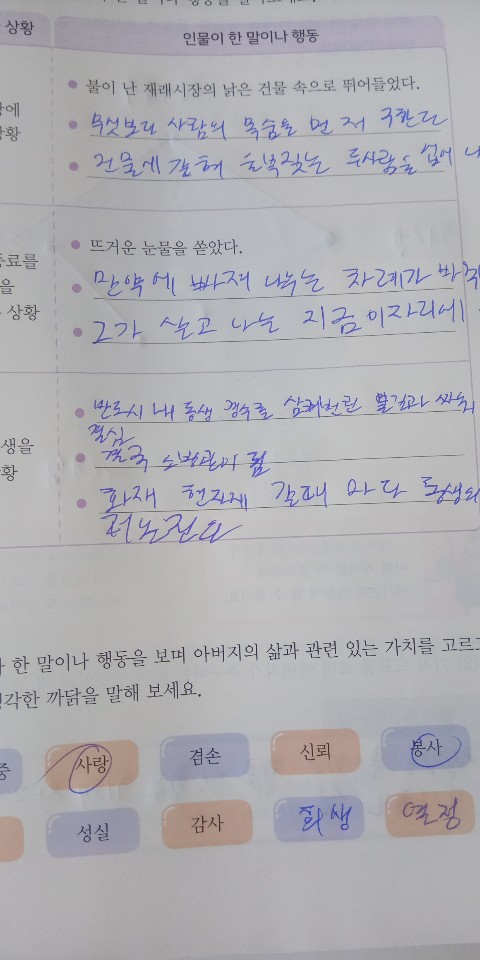 상황
인물이 한 말이나 행동
불이 난 재래시장의 낡은 건물 속으로 뛰어들었다.
무엇보다 사람의 목숨을 먼저 구한다
상황
건물에 갇혀 두사람을 업어
뜨거운 눈물을 쏟았다.
동료를
만약에 빠져 나누는 차례가 바뀌
을
상황
그가 살고 나는 지금 이자리에
반드시 내 동생 경수를 삼켜버린 불길과 싸워
결심
생을
결국 소방관이 됨
상황
화재 현장에 갈때 마다 동생의
한 말이나 행동을 보며 아버지의 삶과 관련 있는 가치를 고르고
생각한 까닭을 말해 보세요.
중 사랑 겸손 신뢰 봉사
성실 감사 희생 열정